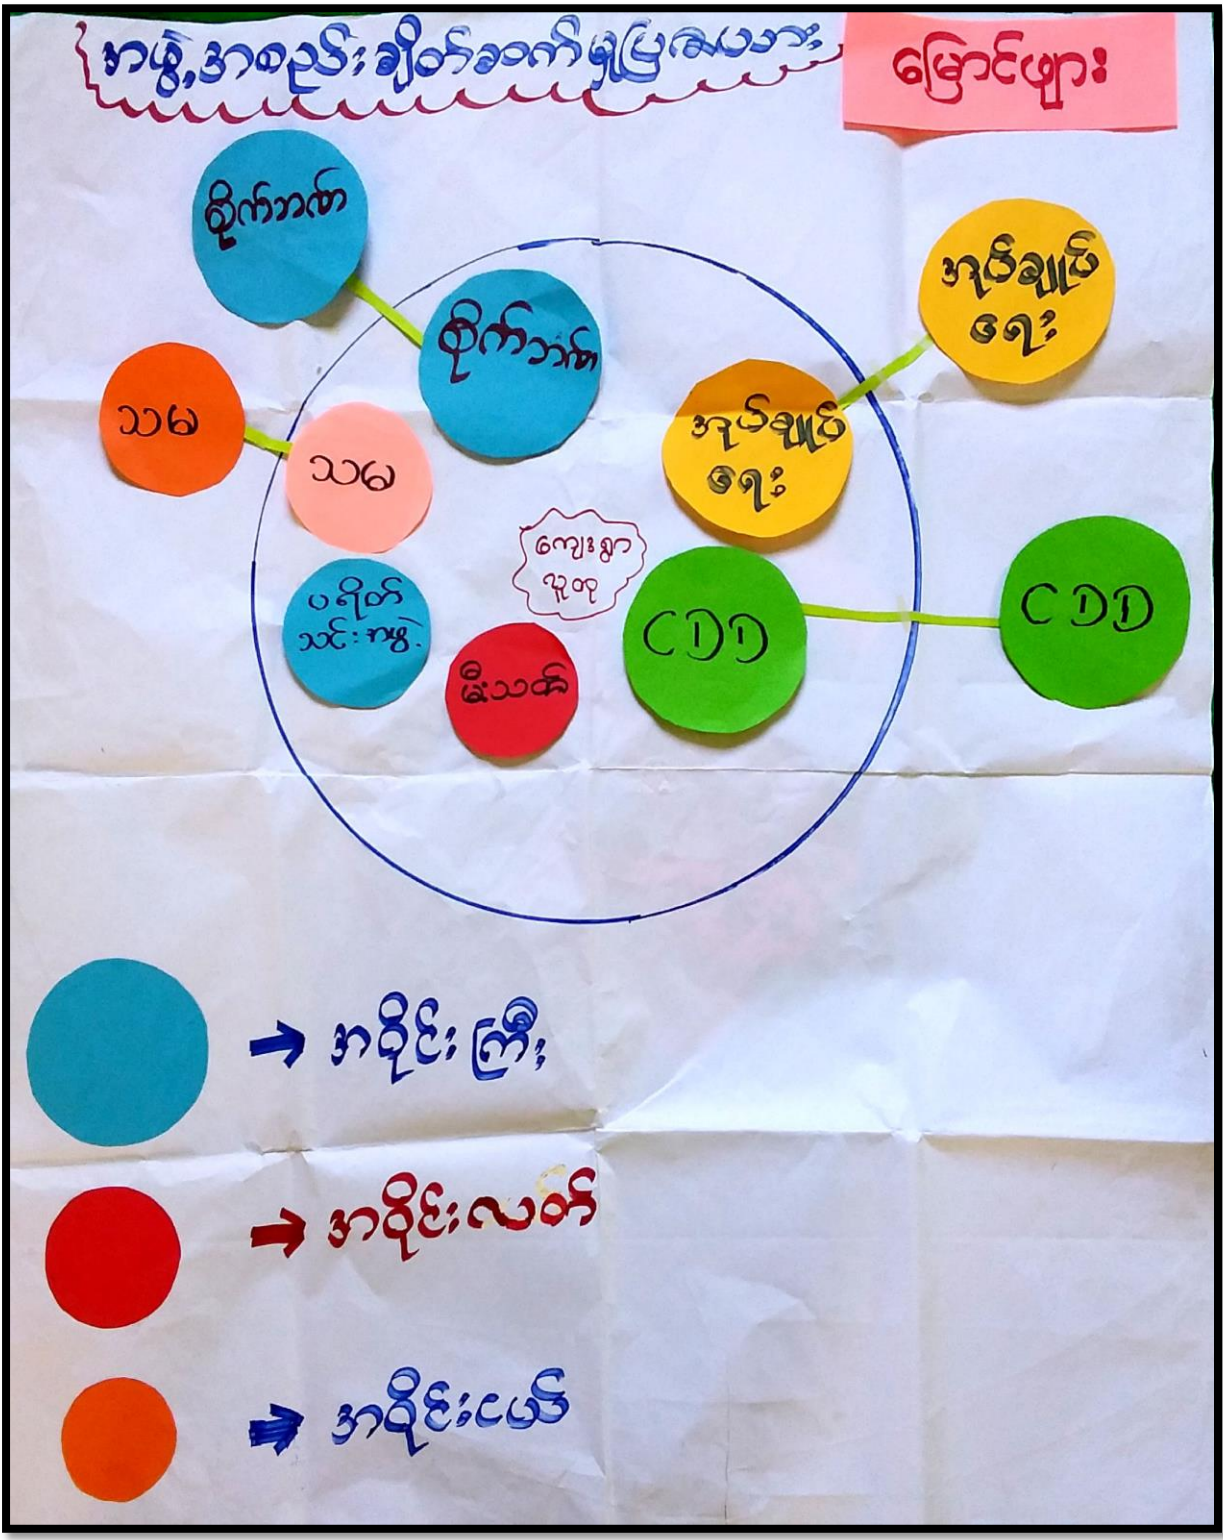 အဖွဲ့အစည်းချိတ်ဆက်မှုပြဇယား
မြောင်ဖျား
စိုက်ဘဏ်
စိုက်ဘဏ်
အုပ်ချုပ်
ရေး
သမ
သမ
အုပ်ချုပ်
ရေး
ကျေးရွာ
လူထု
ပရိတ်
သင်းအဖွဲ့
မီးသတ်
CDD
CDD
အဝိုင်းကြီး
အဝိုင်းလတ်
အဝိုင်းငယ်